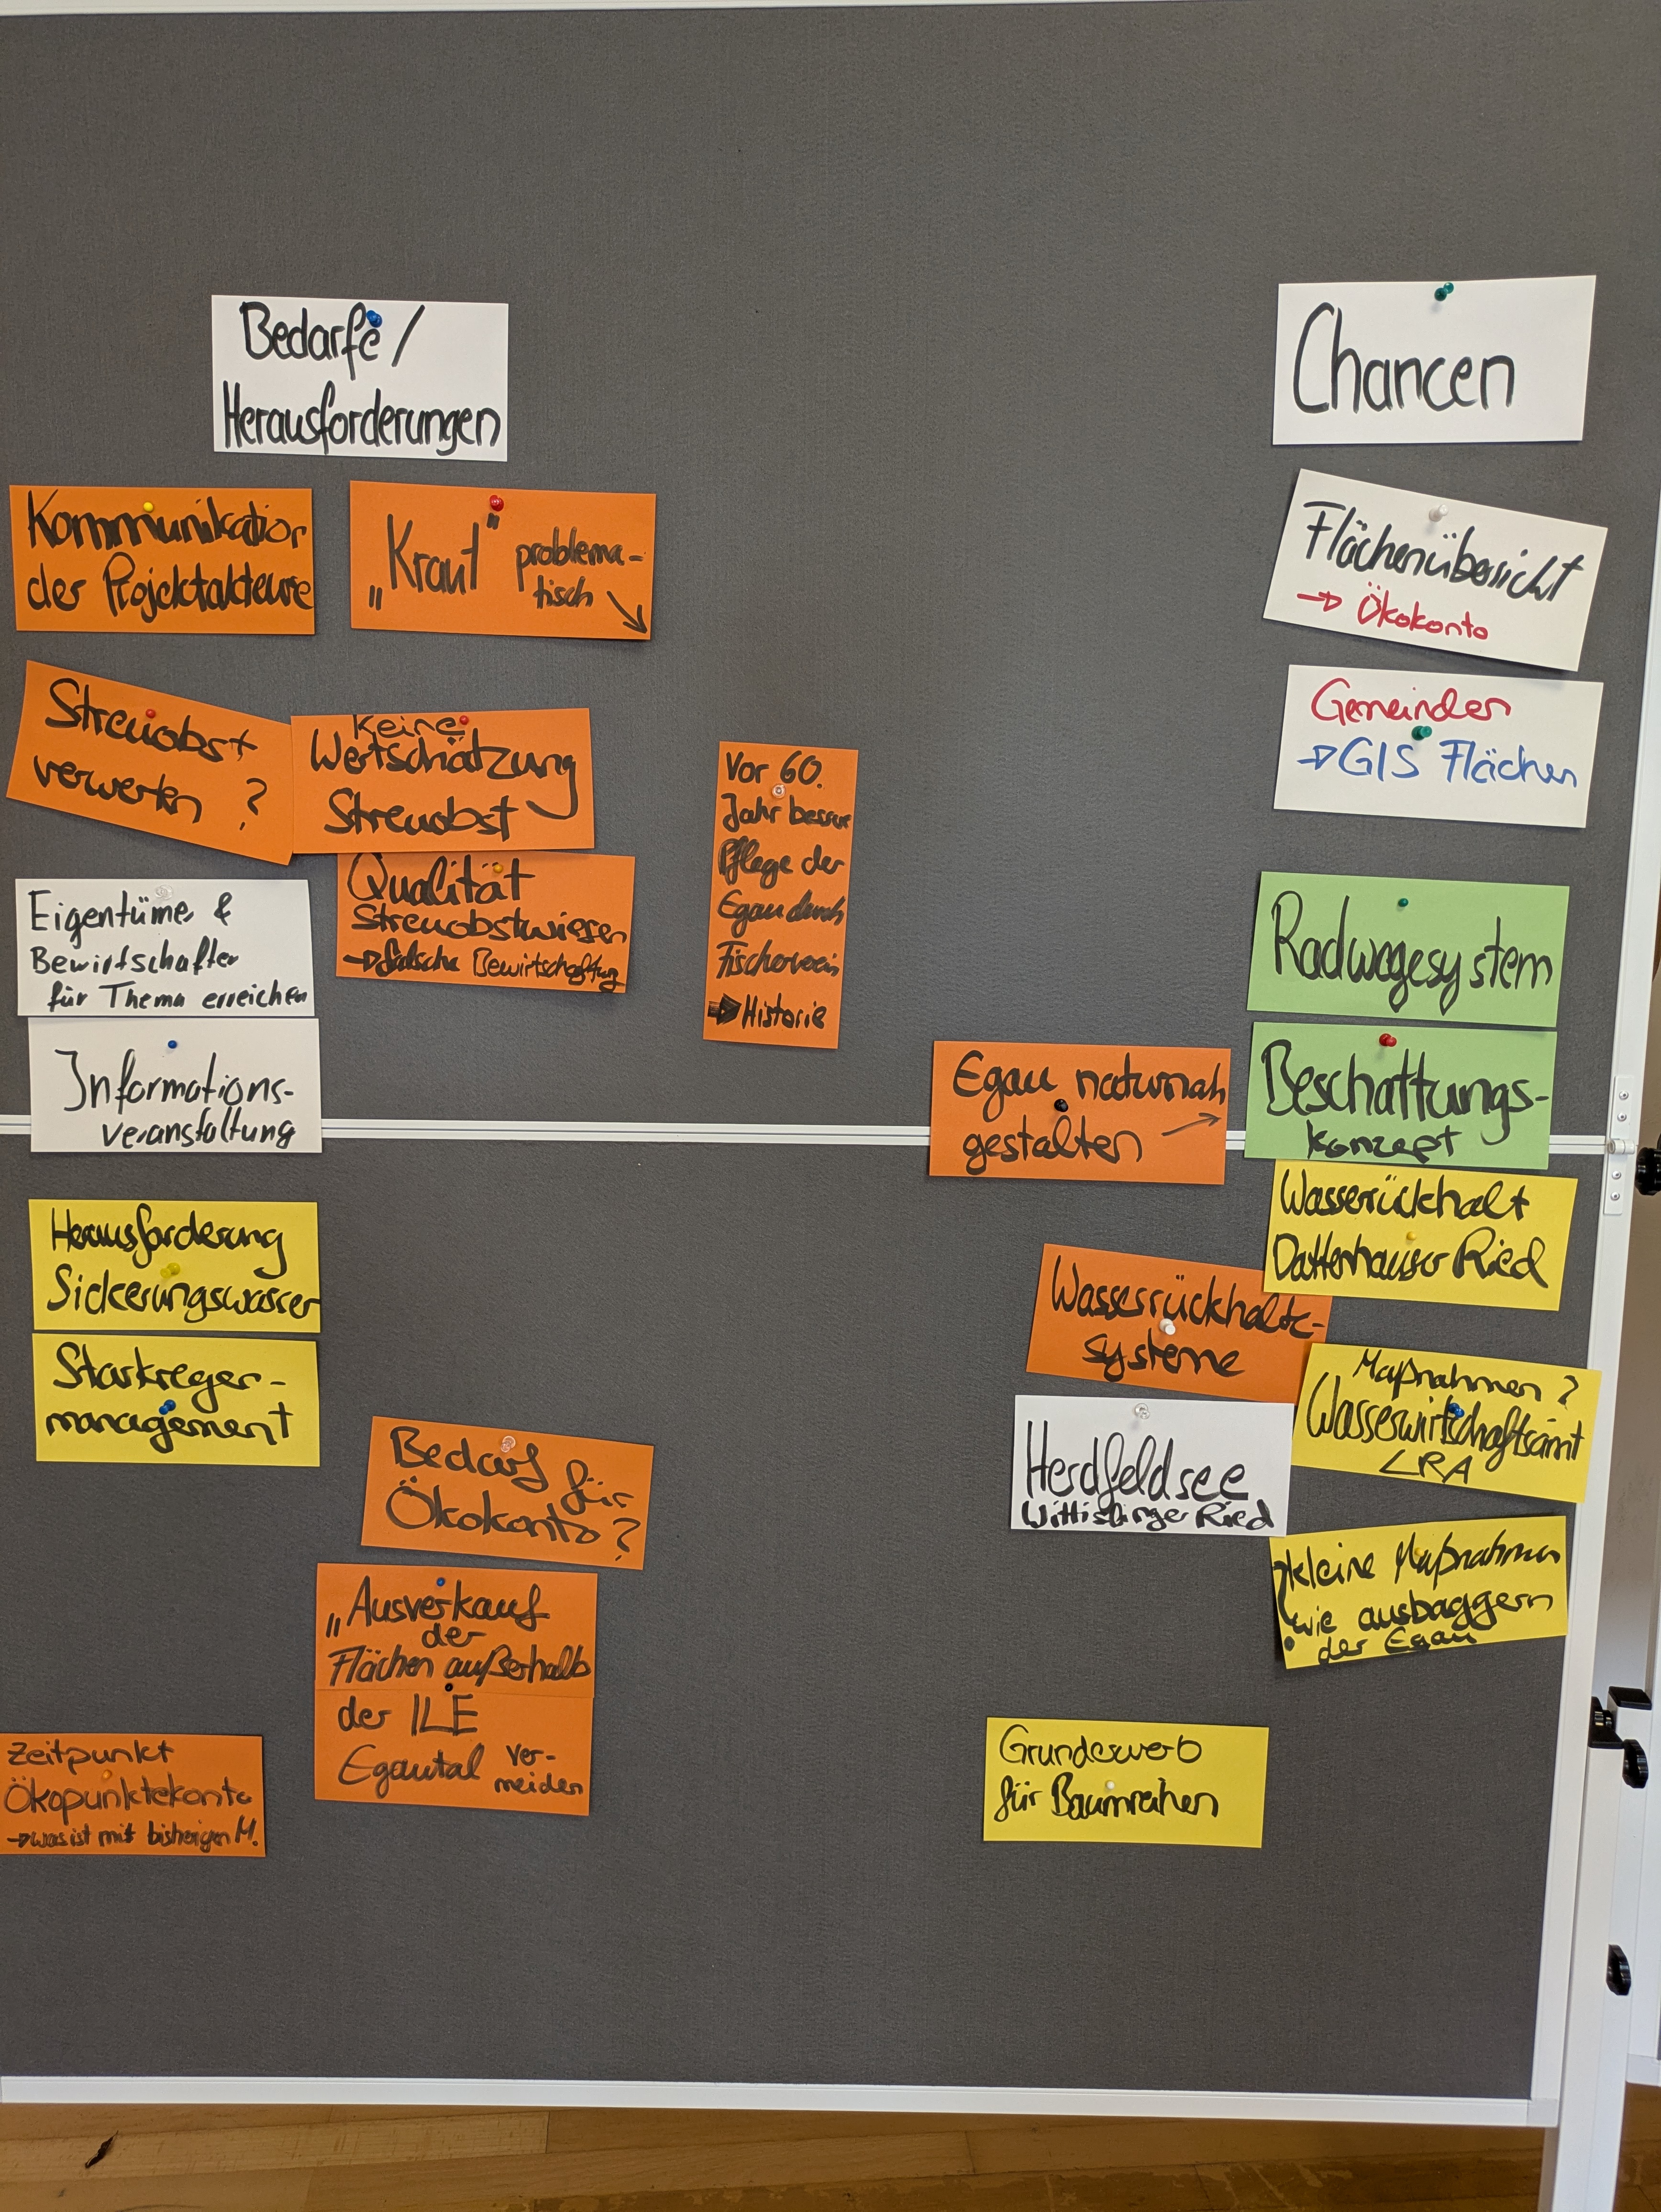 Bedarfe /
Herausforderungen
Kommunikation
der Projektakteure
„Kraut" problema-
tisch ↘
Streuobst
verwerten ?
Keine
Wertschätzung
Streuobst
Qualität
Streuobstwiesen
→ falsche Bewirtschaftung
Eigentüme &
Bewirtschafter
für Thema erreichen
Informations-
veranstaltung
Herausforderung
Sickerungswasser
Starkregen-
management
Bedarf für
Ökokonto ?
„Ausverkauf
der
Flächen außerhalb
der ILE
Egautal ver-
meiden
Zeitpunkt
Ökopunktekonto
→ was ist mit bisherigen M.
Vor 60.
Jahr besser
Pflege der
Egau durch
Fischerverein
→ Historie
Chancen
Flächenübersicht
→ Ökokonto
Gemeinden
→ GIS Flächen
Radwegesystem
Egau naturnah
gestalten →
Beschattungs-
konzept
Wasserrückhalt
Dattenhauser Ried
Wasserrückhalte-
systeme
Maßnahmen ?
Wasserwirtschaftsamt
LRA
Herdfeldsee
Wittislinger Ried
kleine Maßnahmen
wie ausbaggern
der Egau
Grunderwerb
für Baumreihen